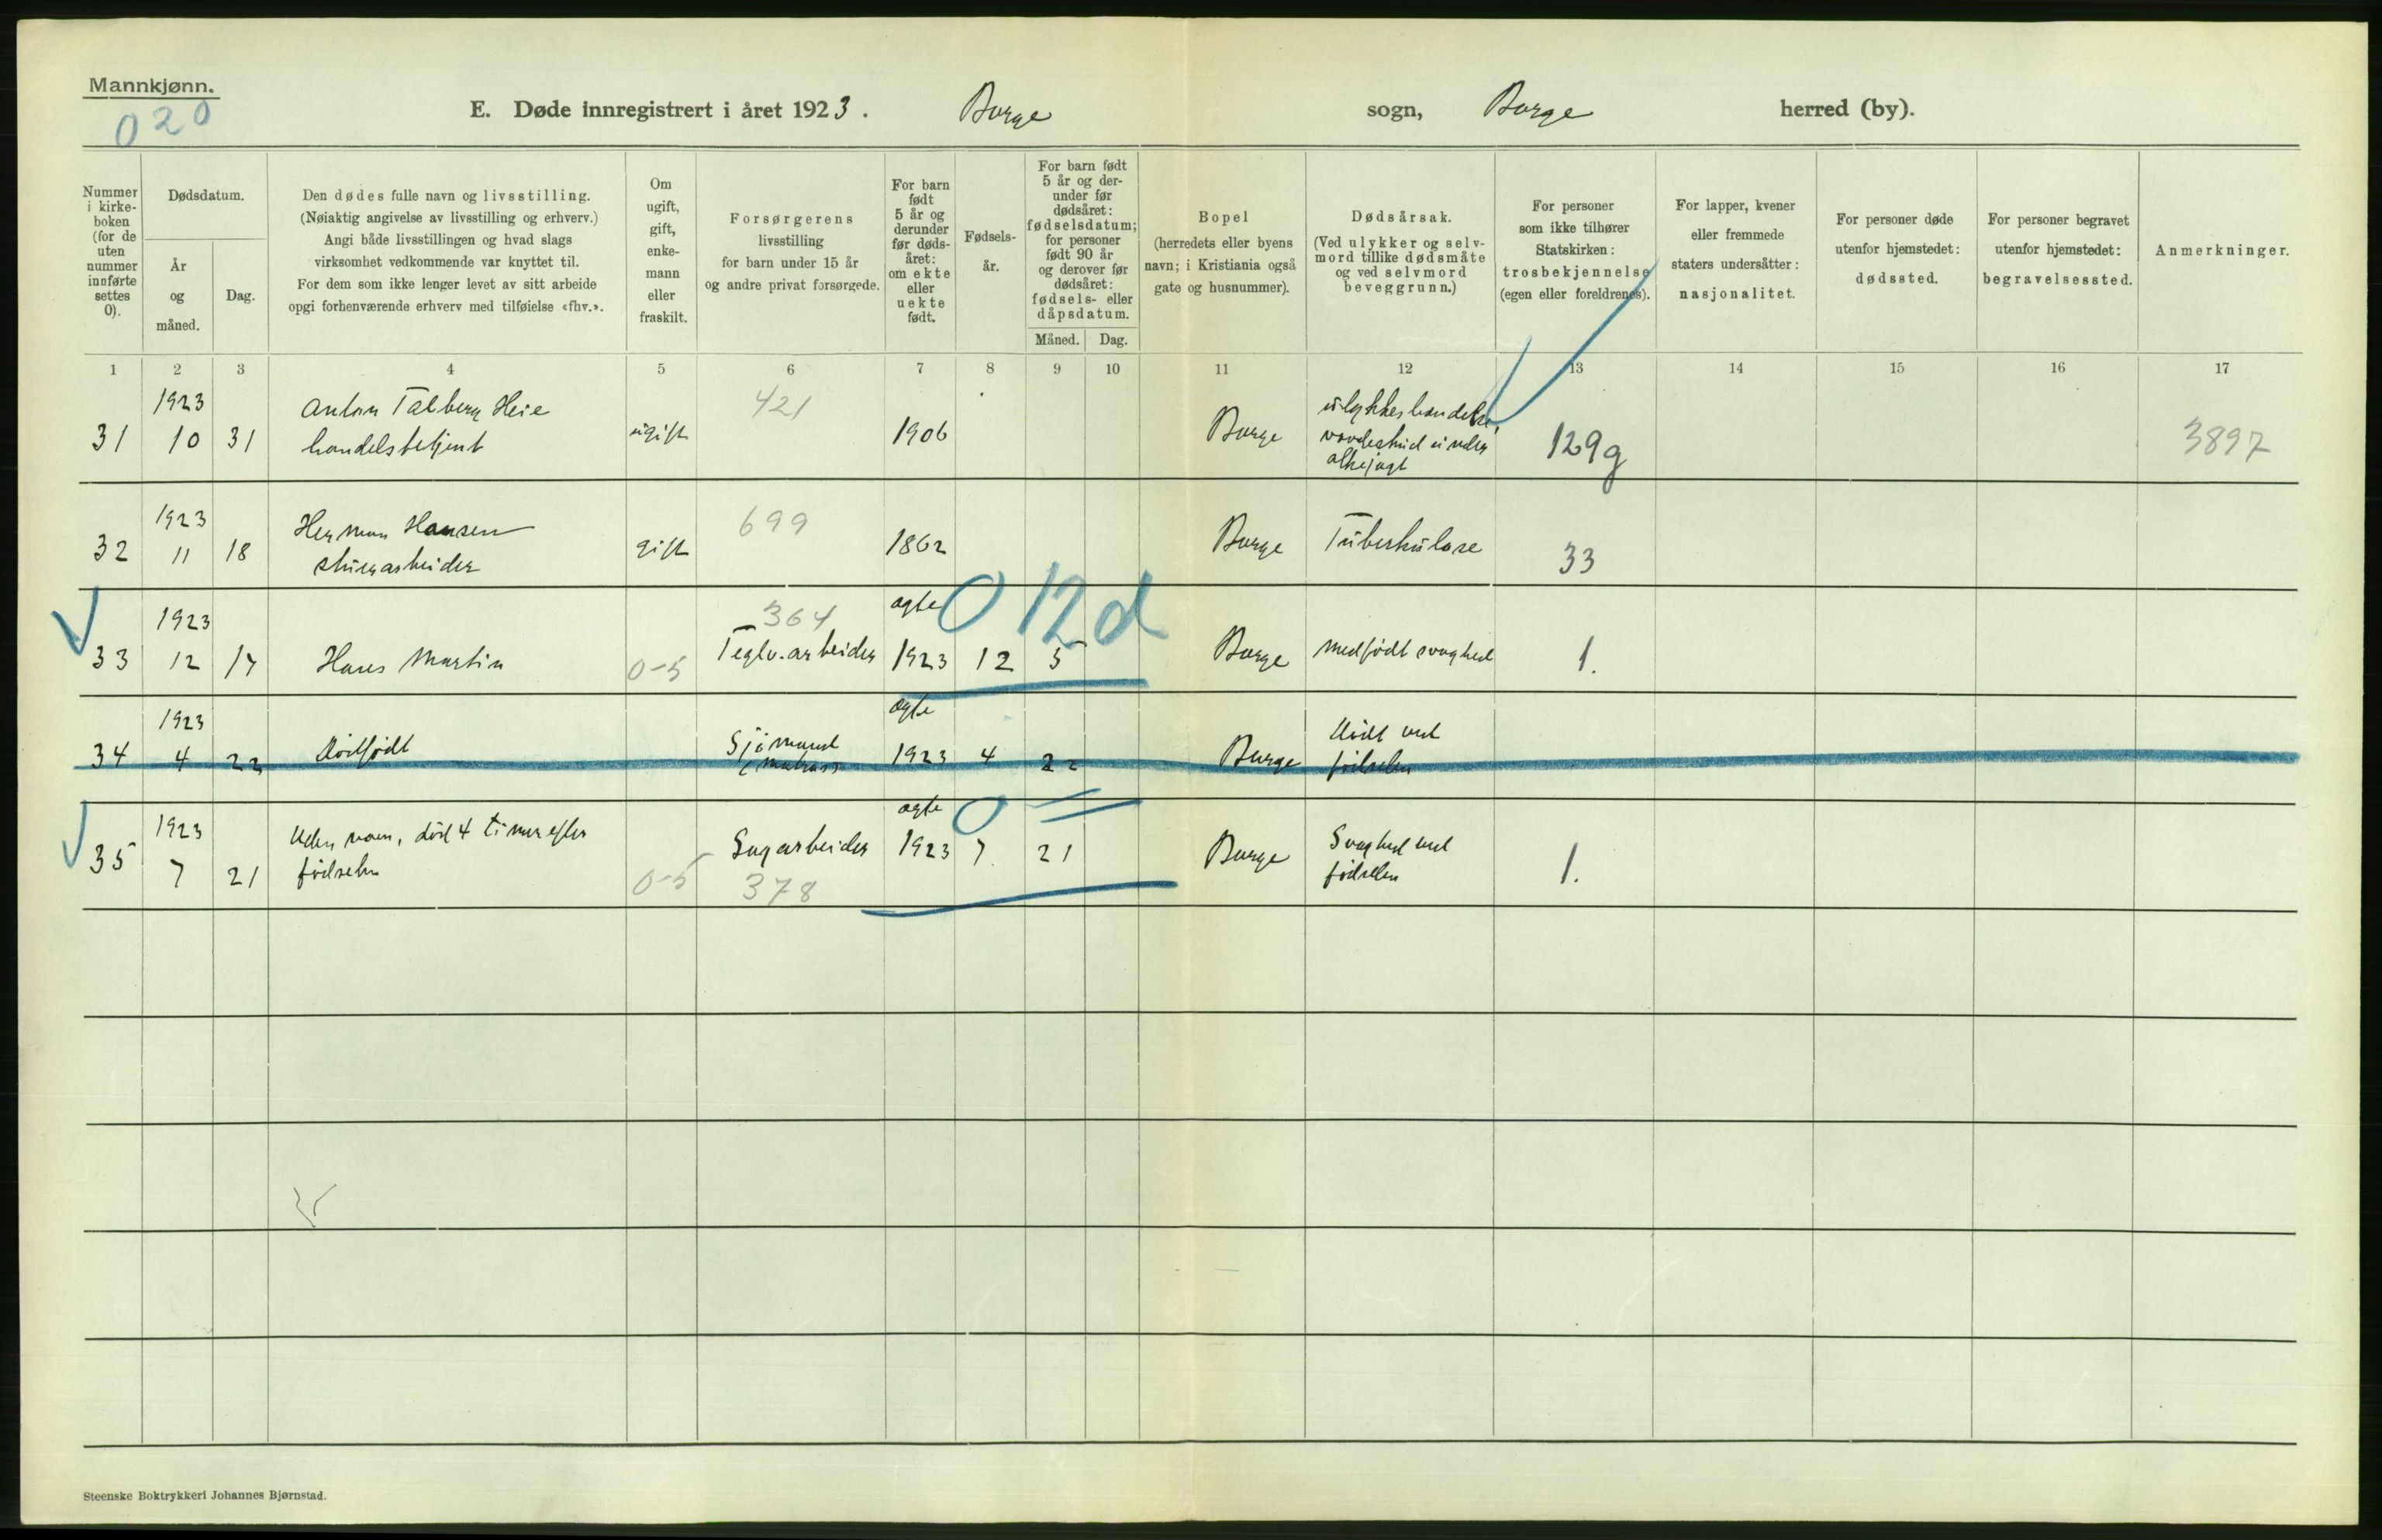 Mannkjønn.
020
E. Døde innregistrert i året 1923. Borge sogn, Borge herred (by).
Nummer
i kirke-
boken
(for de
uten
nummer
innførte
settes
0).
Dødsdatum.
År
og
måned.
Dag.
Den dødes fulle navn og livsstilling.
(Nøiaktig angivelse av livsstilling og erhverv.)
Angi både livsstillingen og hvad slags
virksomhet vedkommende var knyttet til.
For dem som ikke lenger levet av sitt arbeide
opgi forhenværende erhverv med tilføielse «fhv.».
Om
ugift,
gift,
enke-
mann
eller
fraskilt.
Forsørgerens
livsstilling
for barn under 15 år
og andre privat forsørgede.
For barn
født
5 år og
derunder
før døds-
året:
om ekte
eller
uekte
født.
Fødsels-
år.
For barn født
5 år og der-
under før
dødsåret:
fødselsdatum;
for personer
født 90 år
og derover før
dødsåret:
fødsels- eller
dåpsdatum.
Måned. Dag.
Bopel
(herredets eller byens
navn; i Kristiania også
gate og husnummer).
Dødsårsak.
(Ved ulykker og selv-
mord tillike dødsmåte
og ved selvmord
beveggrunn.)
For personer
som ikke tilhører
Statskirken:
trosbekjennelse
(egen eller foreldrenes).
For lapper, kvener
eller fremmede
staters undersåtter:
nasjonalitet.
For personer døde
utenfor hjemstedet:
dødssted.
For personer begravet
utenfor hjemstedet:
begravelsessted.
Anmerkninger.
1 2 3 4 5 6 7 8 9 10 11 12 13 14 15 16 17
1923 Anton Talberg Heie 421 ulykkeshandelse
31 10 31 handelsbetjent ugift 1906 Borge vaadeskud under 129g 3897
alkejagt
1923 Herman Hansen 699
32 11 18 skuerarbeider gift 1862 Borge Tuberkulose 33
1923 364 ægte 0 12d
33 12 17 Hans Martin 0-5 Teglv.arbeider 1923 12 5 Borge medfødt svaghed 1.
1923 Sjømand ægte Død ved
34 4 22 Dødfødt 1923 4 22 Borge fødselen
1923 Uden navn, død 4 timer efter ægte 0 Svaghed ved
35 7 21 fødselen 0-5 Sagarbeider 1923 7 21 Borge fødselen 1.
378
Steenske Boktrykkeri Johannes Bjørnstad.